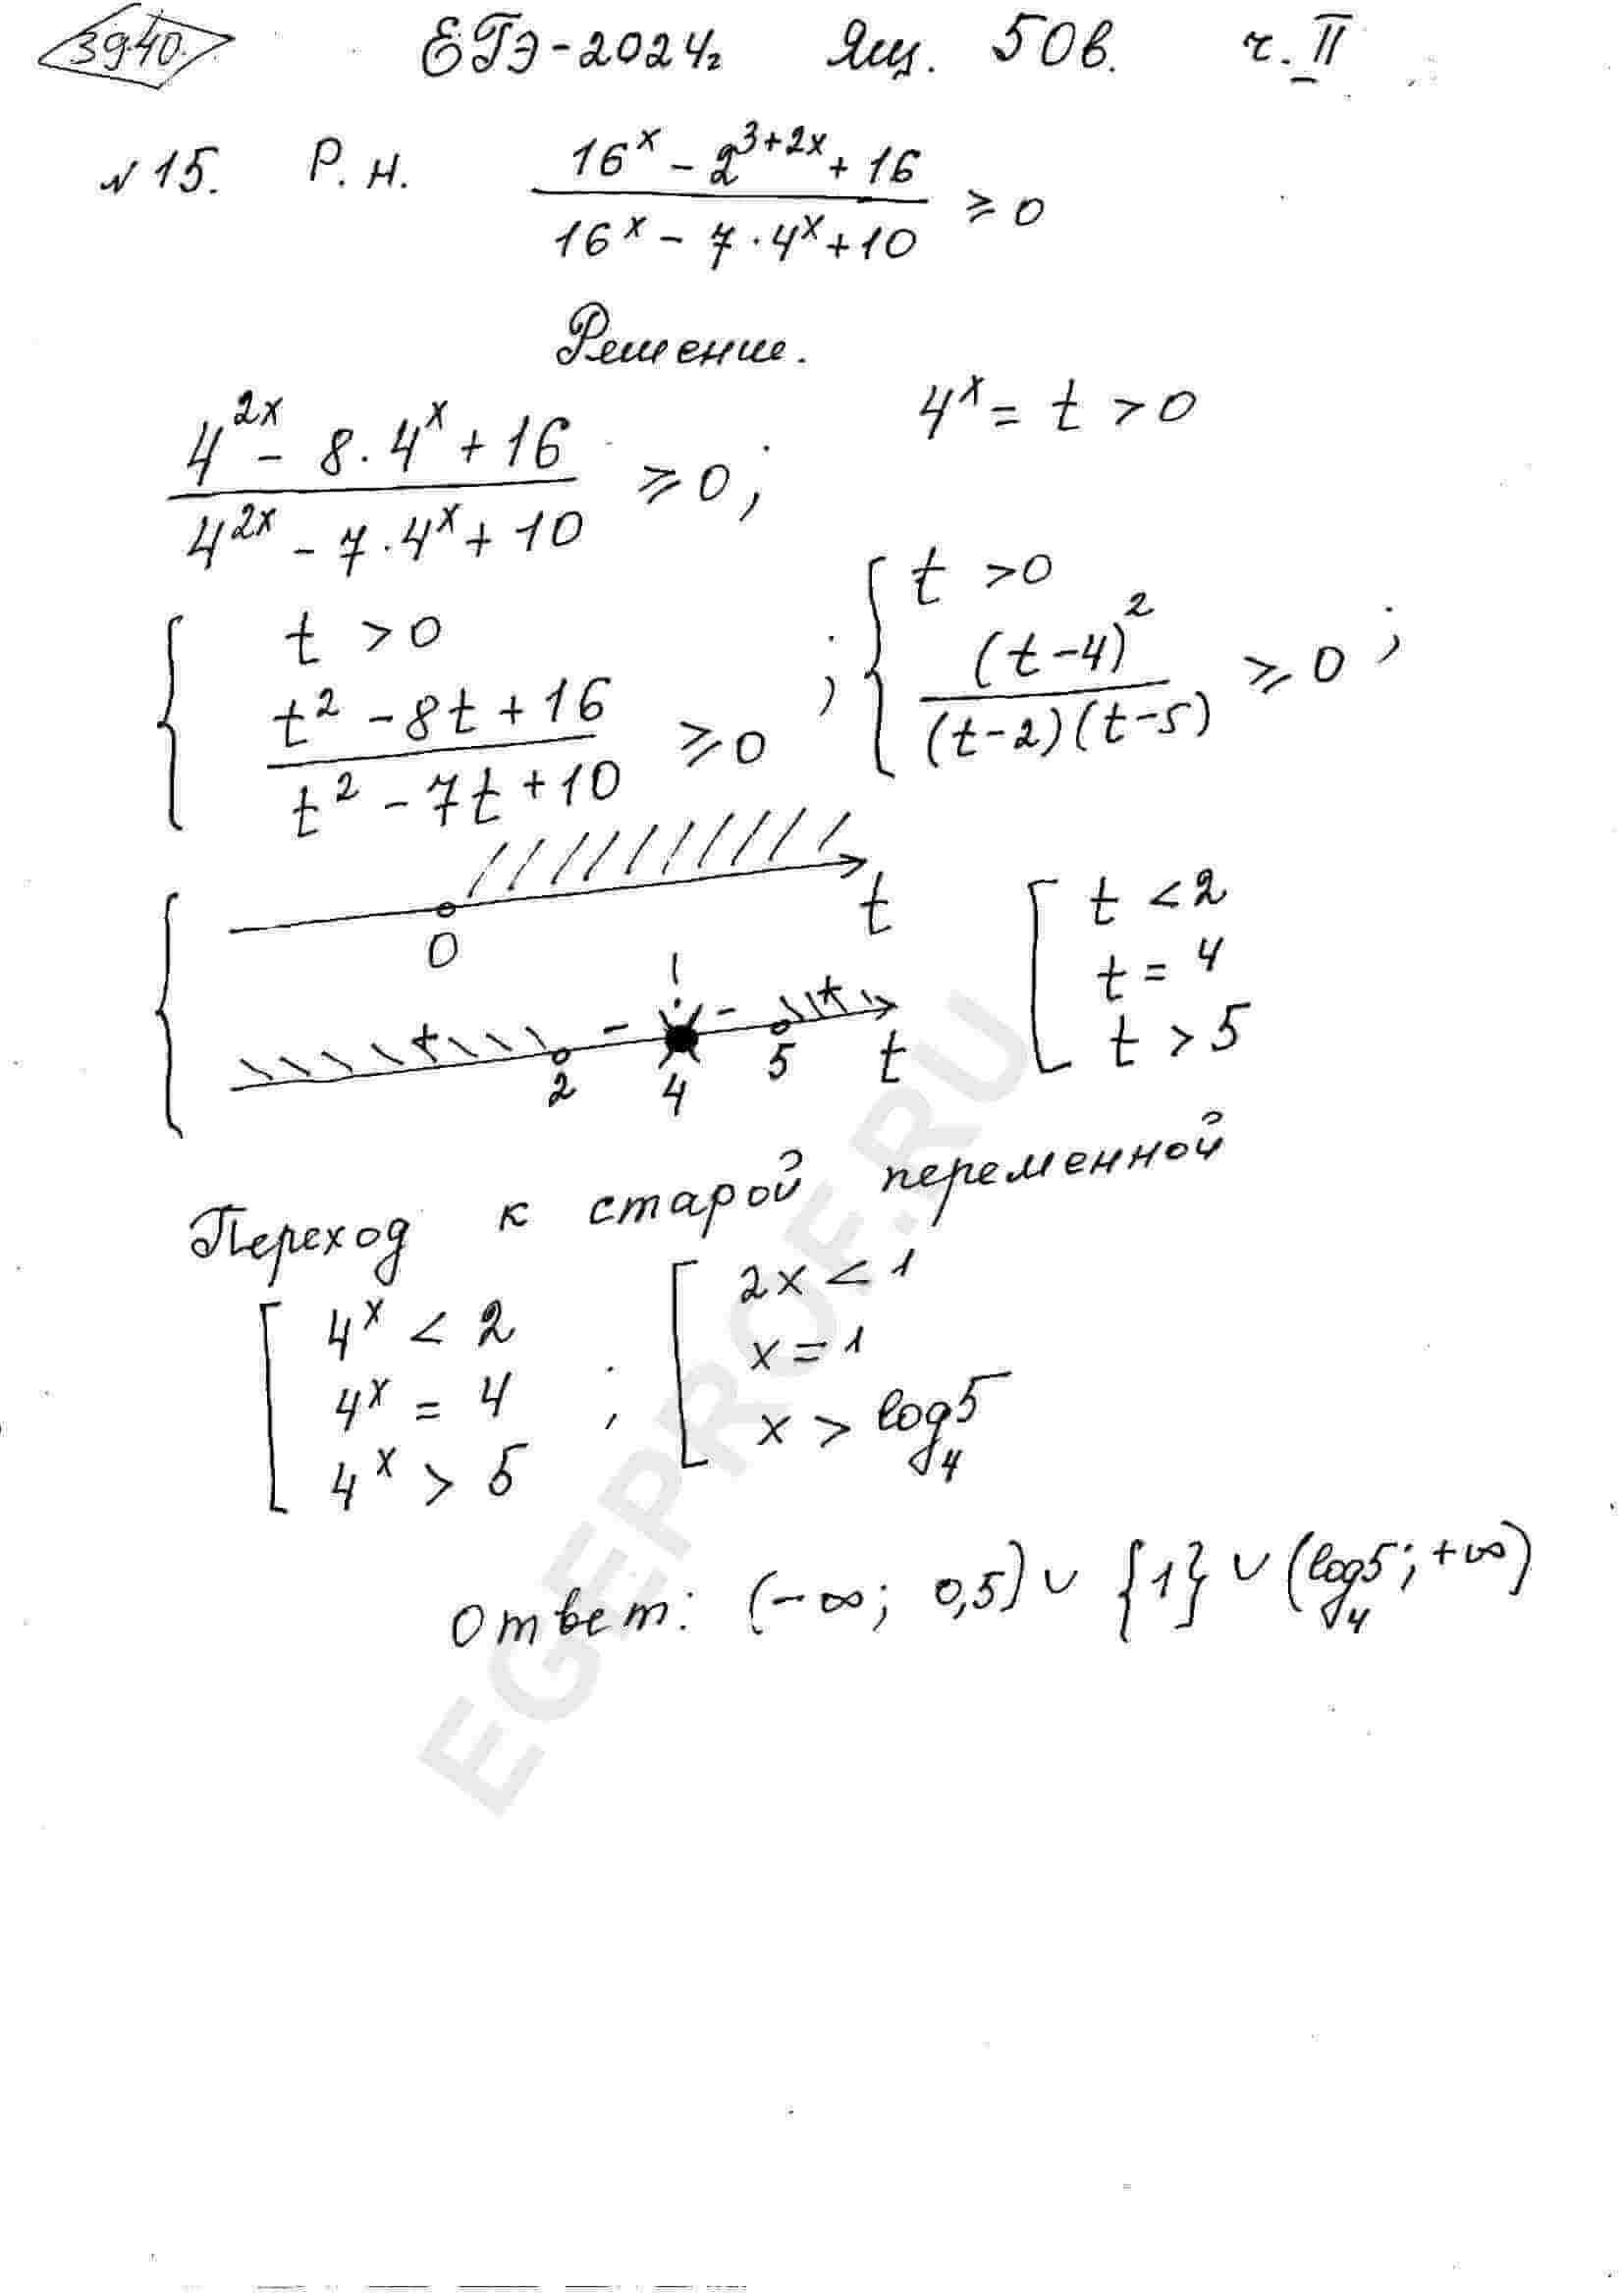 39.40. ЕГЭ-2024г Ящ. 50в. ч. II
№15. Р. н. (16^x - 2^(3+2x) + 16)/(16^x - 7·4^x + 10) ≥ 0
Решение.
(4^(2x) - 8·4^x + 16)/(4^(2x) - 7·4^x + 10) ≥ 0; 4^x = t > 0
{ t > 0
(t^2 - 8t + 16)/(t^2 - 7t + 10) ≥ 0 ;
{ t > 0
(t-4)^2/((t-2)(t-5)) ≥ 0 ;
{ 0 t
+ 2 - 4 - 5 + t
[ t < 2
t = 4
t > 5
Переход к старой переменной
[ 4^x < 2
4^x = 4
4^x > 5 ;
[ 2x < 1
x = 1
x > log_4 5
Ответ: (-∞; 0,5) ∪ {1} ∪ (log_4 5; +∞)
EGEPROF.RU